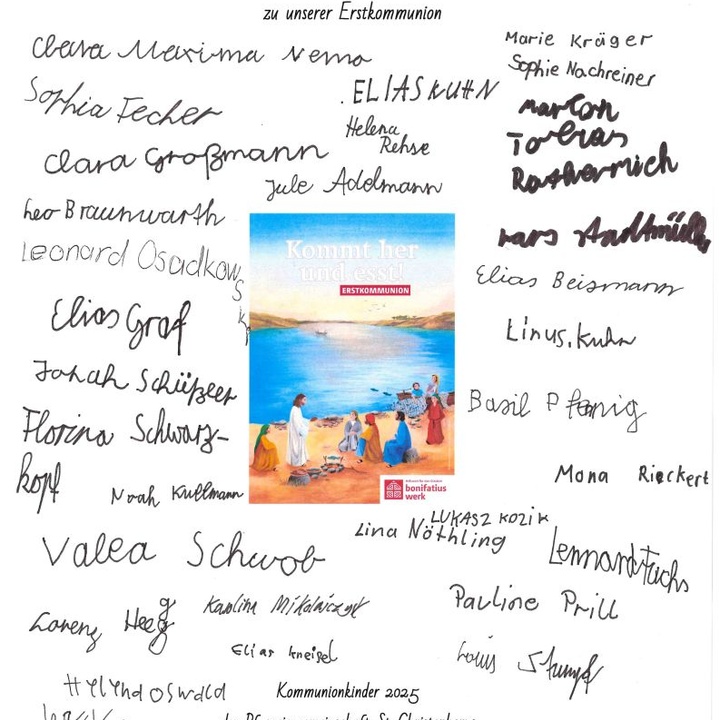 zu unserer Erstkommunion
Clara Maxima Nemo
Marie Kräger
Sophie Nachreiner
Sophia Fecher
ELIAS KUHN
Marlon
Tobias
Rothermich
Helena
Rehse
Clara Großmann
Jule Adelmann
Leo Braunwarth
Lars Stadtmüller
Leonard Osadkowski
Kommt her
und esst!
ERSTKOMMUNION
Elias Beismann
Elias Graf
Linus Kuhn
Jonah Schüßler
Basil Pfennig
Florina Schwarz-
kopf
Noah Kullmann
Mona Rieckert
bonifatius
werk
LUKASZ KOZIK
Lina Nöthling
Lennard Fuchs
Valea Schwob
Karolina Mikolaiczyk
Pauline Prill
Lorenz Heeg
Elias Kneisel
Louis Stumpf
Helena Oswald
Kommunionkinder 2025